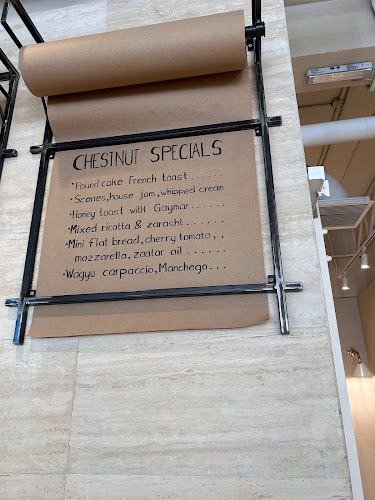 CHESTNUT SPECIALS
•Pound cake French toast......
•Scones, house jam, whipped cream
•Honey toast with Gaymar......
•Mixed ricotta & zarasht......
•Mini flat bread, cherry tomato, ,
mozzarella, zaatar oil.......
•Wagyu carpaccio, Manchego...